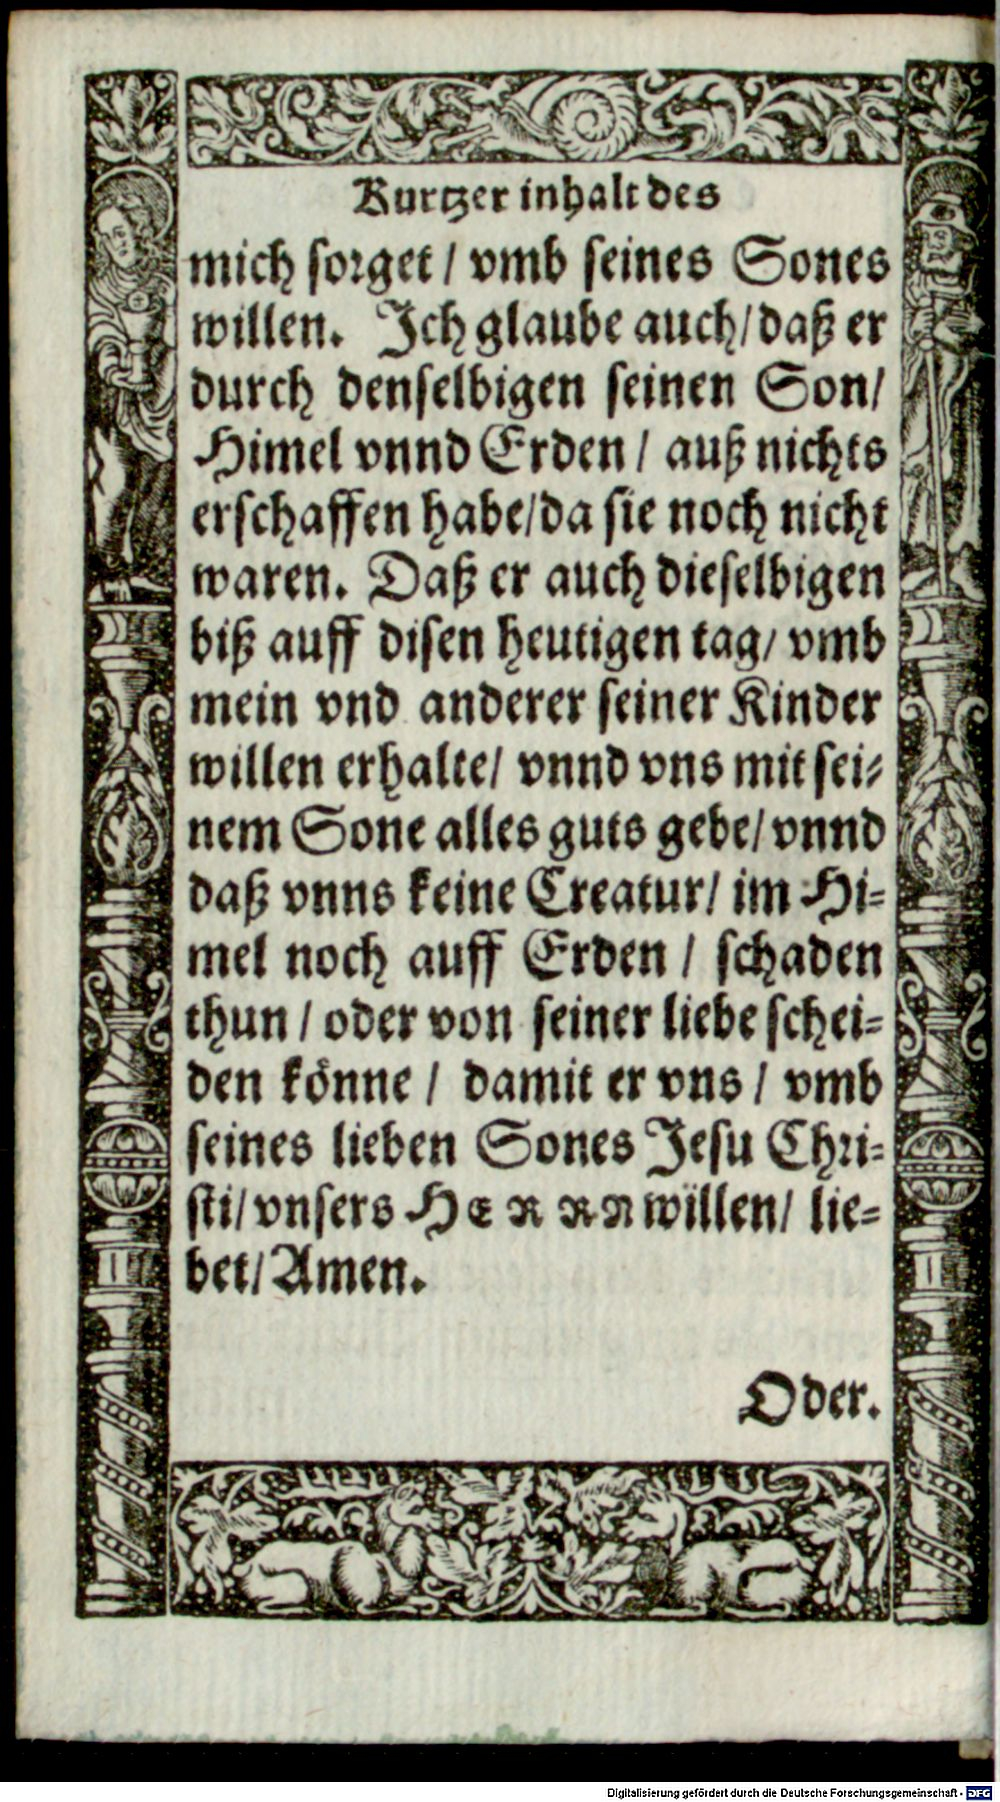 Kurtzer inhalt des
mich sorget / vmb seines Sones
willen. Ich glaube auch/ daß er
durch denselbigen seinen Son/
Himel vnnd Erden / auß nichts
erschaffen habe/ da sie noch nicht
waren. Daß er auch dieselbigen
biß auff disen heutigen tag/ vmb
mein vnd anderer seiner Kinder
willen erhalte/ vnnd vns mit sei-
nem Sone alles guts gebe/ vnnd
daß vnns keine Creatur/ im Hi-
mel noch auff Erden / schaden
thun / oder von seiner liebe schei-
den könne / damit er vns / vmb
seines lieben Sones Jesu Chri-
sti/ vnsers HERRN willen/ lie-
bet/ Amen.
Oder.
Digitalisierung gefördert durch die Deutsche Forschungsgemeinschaft - DFG